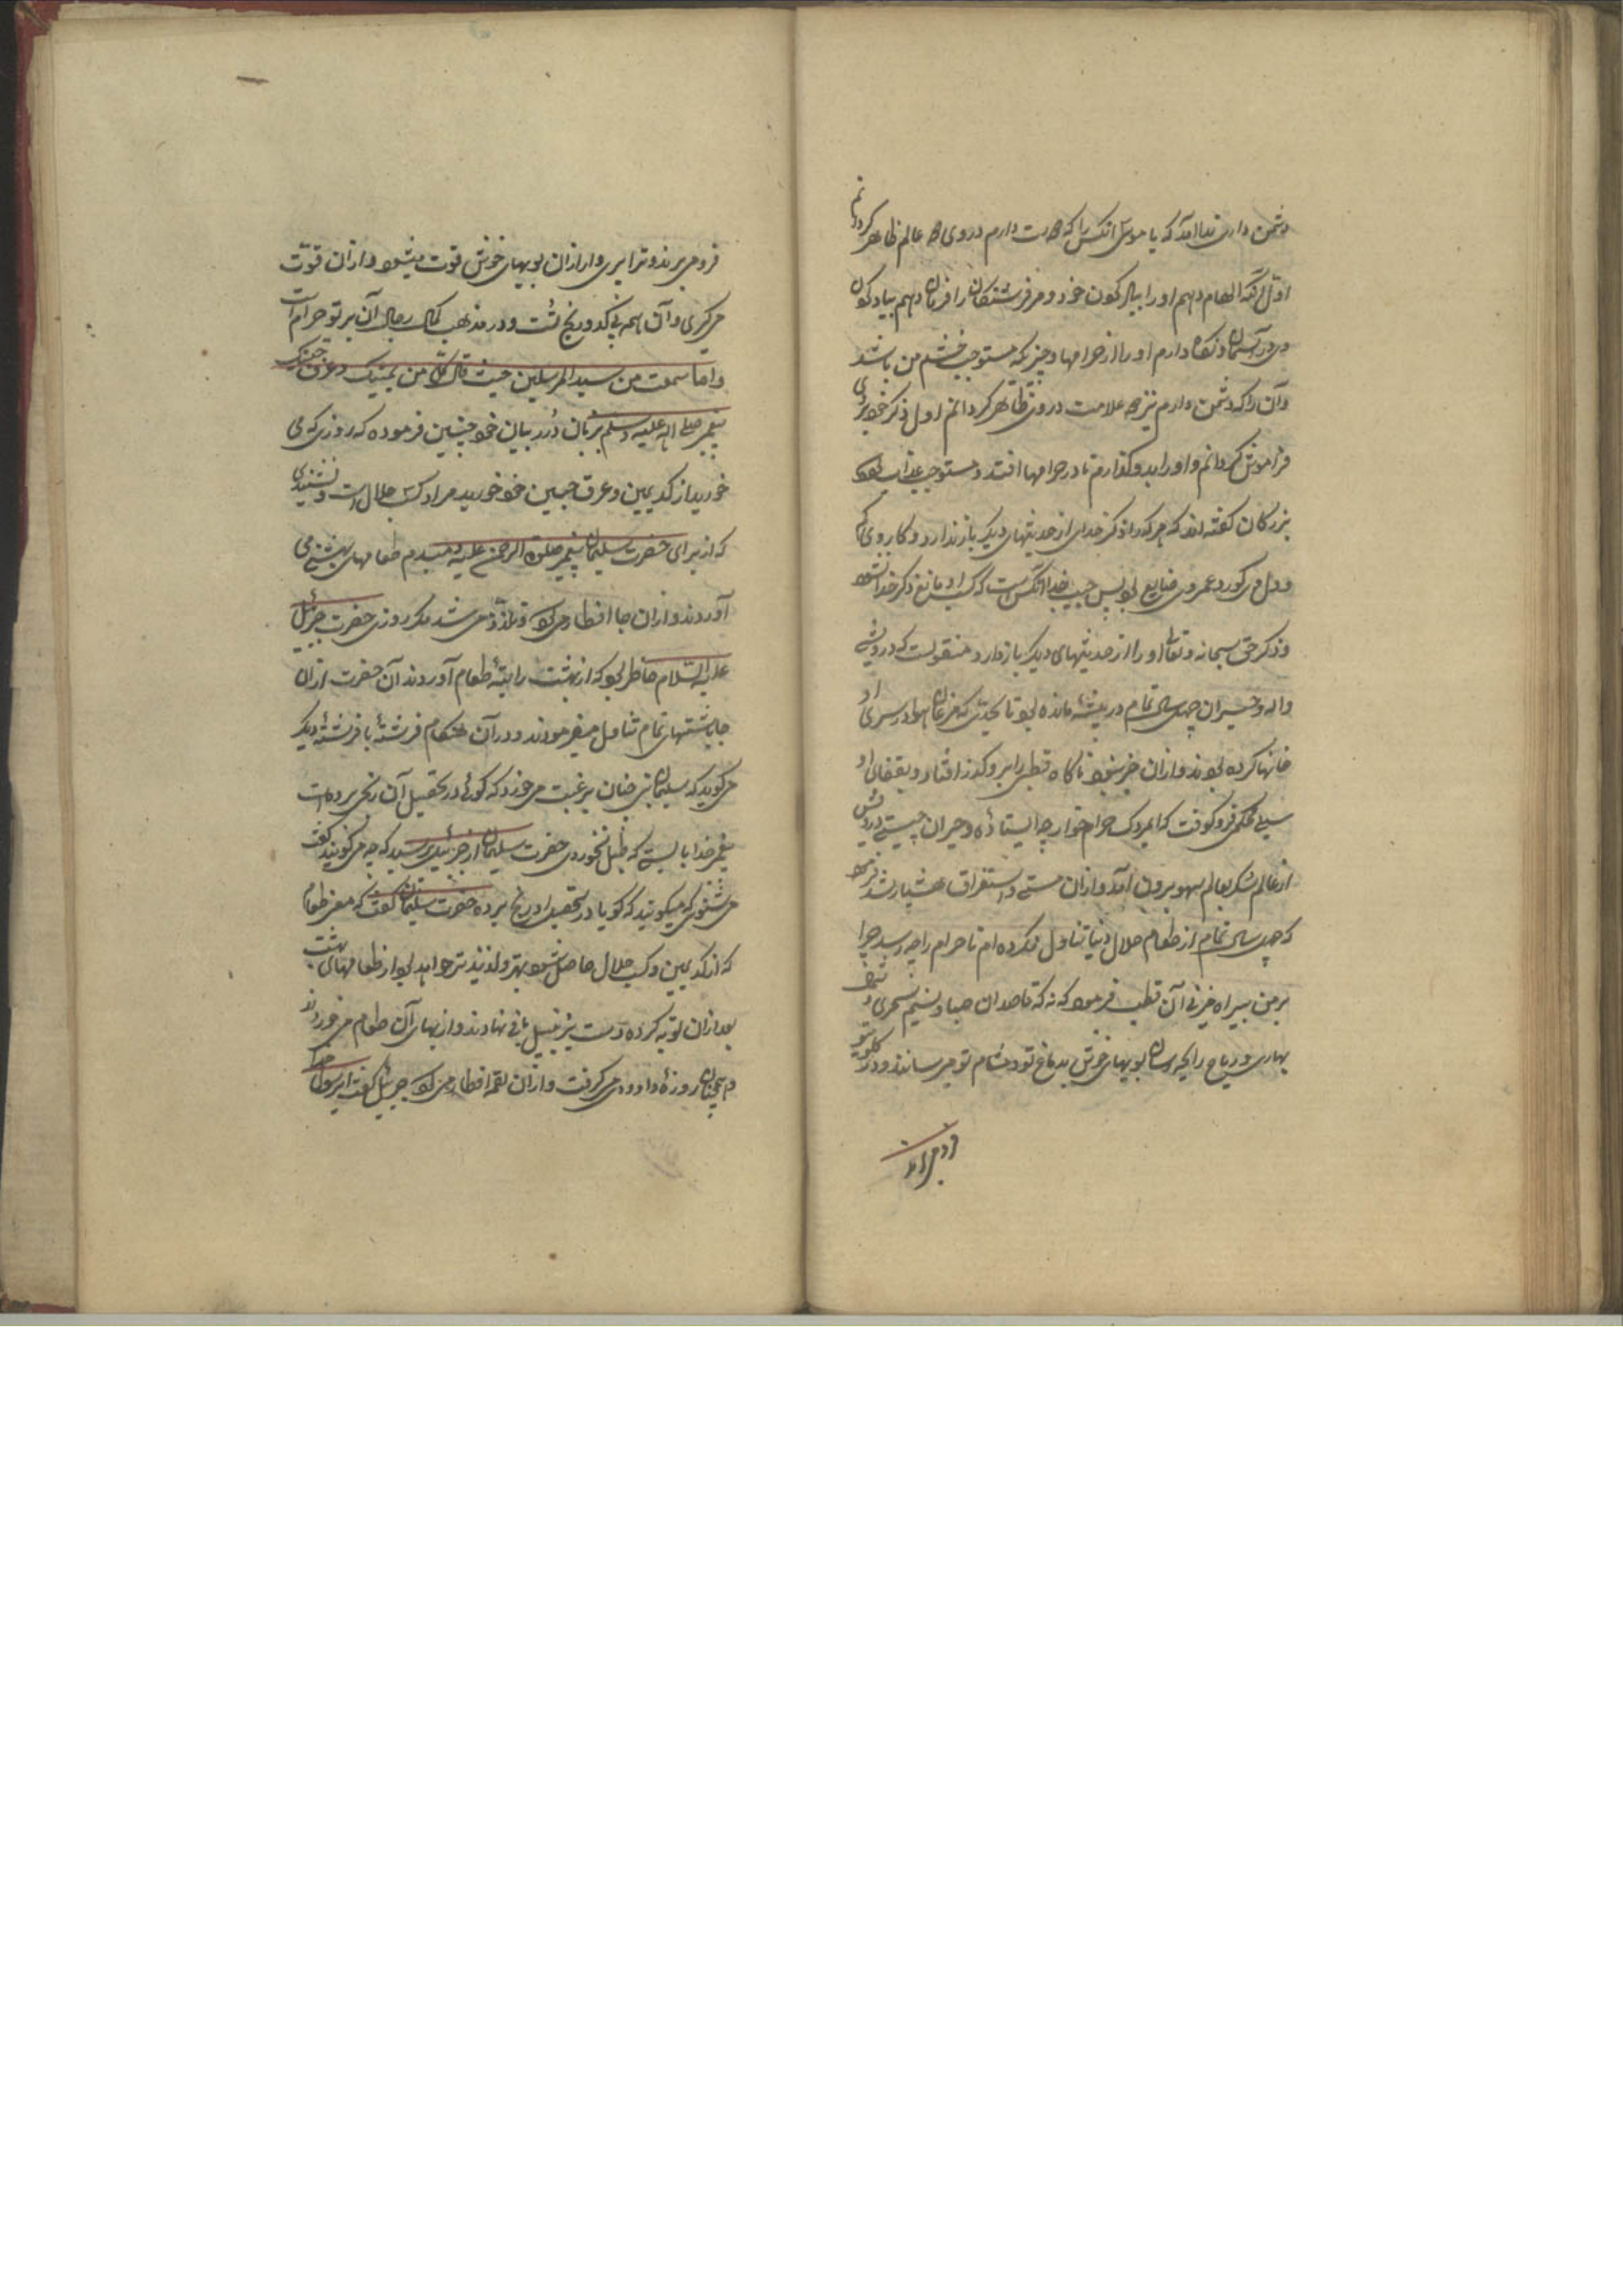 دشمن داری ندا آمد که یا موسی آنکس را که دوست دارم در وی دو عالم ظاهر گردانم
اول آنکه الهام دهم او را بیاد کردن خود و مر فرشتگان را فرمان دهم بیاد کردن
وی در آسمان و نگاه دارم او را از حرامها و چیزیکه مستوجب خشم من باشد
و آن را که دشمن دارم نیز دو علامت در وی ظاهر گردانم اول ذکر خود بر وی
فراموش گردانم و او را بدو گذارم تا در حرامها افتد و مستوجب عذاب شود
بزرگان گفته اند که هر کرا ذکر خدای از حدیثهای دیگر باز ندارد و کار وی کم
و دل وی کور و عمر وی ضایع بود پس حبیب خدا آنکس است که کسب او مانع ذکر خدا نشود
و ذکر حق سبحانه و تعالی او را از حدیثهای دیگر باز دارد منقولست که درویشی
واله و حیران چهل سال تمام در بیشه مانده بود تا بحدی که مرغان هوا در سر او
خانها کرده بودند و از آن خبر نبود ناگاه قطبی را بر او گذر افتاد و بقفای او
سیلی محکم فرو کوفت که ای مردک حرام خوار چه ایستاده و حیران چیستی درویش
از عالم سکر بعالم سهو بیرون آمد و از آن مستی و استغراق هشیار شد فرمود
که چهل سال تمام از طعام حلال دنیا تناول نکرده ام تا حرام را چه رسد چرا
بر من بیراه میزنی آن قطب فرمود که نه که قاصدان صبا و نسیم سحری و
بهاری و ریاح رایحه رسان بویهای خوش بدماغ تو و مشام تو میرسانند و در گلوی تو
فرو میبرند
فرو میبرند و ترا پری وار از آن بویهای خوش قوت میشود و از آن قوت
میگیری و آن همه بی کد و رنج تست و در مذهب کمال رجال آن بر تو حرام است
و اما سمعت من سید المرسلین حیث قال کل من کد یمینک و عرق جبینک
پیغمبر صلی الله علیه وسلم بزبان درر بیان خود چنین فرموده که روزی که می
خورید از کد یمین و عرق جبین خود خورید مراد کسب حلال است و نشنیدی
که از برای حضرت سلیمان پیغمبر صلوة الرحمن علیه صبحدم طعامهای بهشتی می
آوردند و از آن جا افطار میکرد و تلذذ می شد مگر روزی حضرت جبرئیل
علیه السلام حاضر بود که از بهشت راتبه طعام آوردند آن حضرت از آن
جا باشتهای تمام تناول میفرمودند و در آن هنگام فرشتهٔ با فرشتهٔ دیگر
میگوید که سلیمان نبی چنان برغبت میخورد که گوئی در تحصیل آن رنجی برده است
پیغمبر خدا بایستی که طفیل نخوردی حضرت سلیمان از جبرئیل پرسید که چه میگویند گفت
می شنوی که میگویند که گویا در تحصیل او رنج برده حضرت سلیمان گفت که مگر طعام
که از کد یمین و کسب حلال حاصل شود بهتر و لذیذتر خواهد بود از طعامهای بهشت
بعد از آن توبه کرده دست بزنبیل بافی نهادند و از بهای آن طعام میخوردند
و همچنان روزهٔ داوودی میگرفت و از آن لقمه افطار میکرد جبرئیل گفت ای رسول خدا